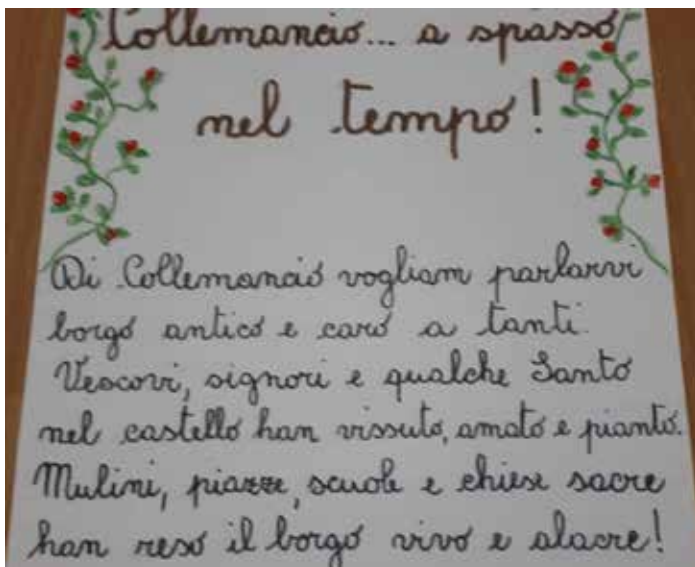 Collemancio... a spasso
nel tempo!
Di Collemancio vogliam parlarvi
borgo antico e caro a tanti.
Vescovi, signori e qualche Santo
nel castello han vissuto, amato e pianto.
Mulini, piazze, scuole e chiese sacre
han reso il borgo vivo e alacre!